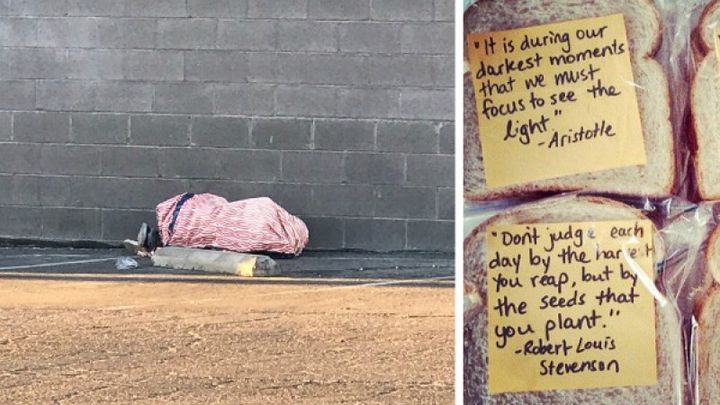 "It is during our
darkest moments
that we must
focus to see the
light"
- Aristotle
"Don't judge each
day by the harvest
you reap, but by
the seeds that
you plant."
- Robert Louis
Stevenson